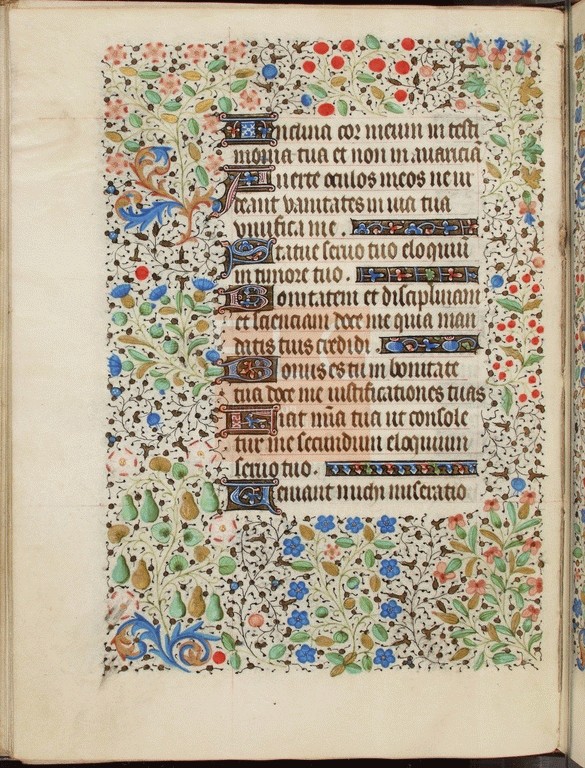 Inclina cor meum in testi
monia tua et non in avaricia
Averte oculos meos ne vi
deant vanitates in via tua
vivifica me.
Statue servo tuo eloquiū
in timore tuo.
Bonitatem et disciplinam
et scienciam doce me quia man
datis tuis credidi
Bonus es tu in bonitate
tua doce me iustificationes tuas
Fiat mīa tua ut console
tur me secundum eloquium
servo tuo.
Veniant michi miseratio